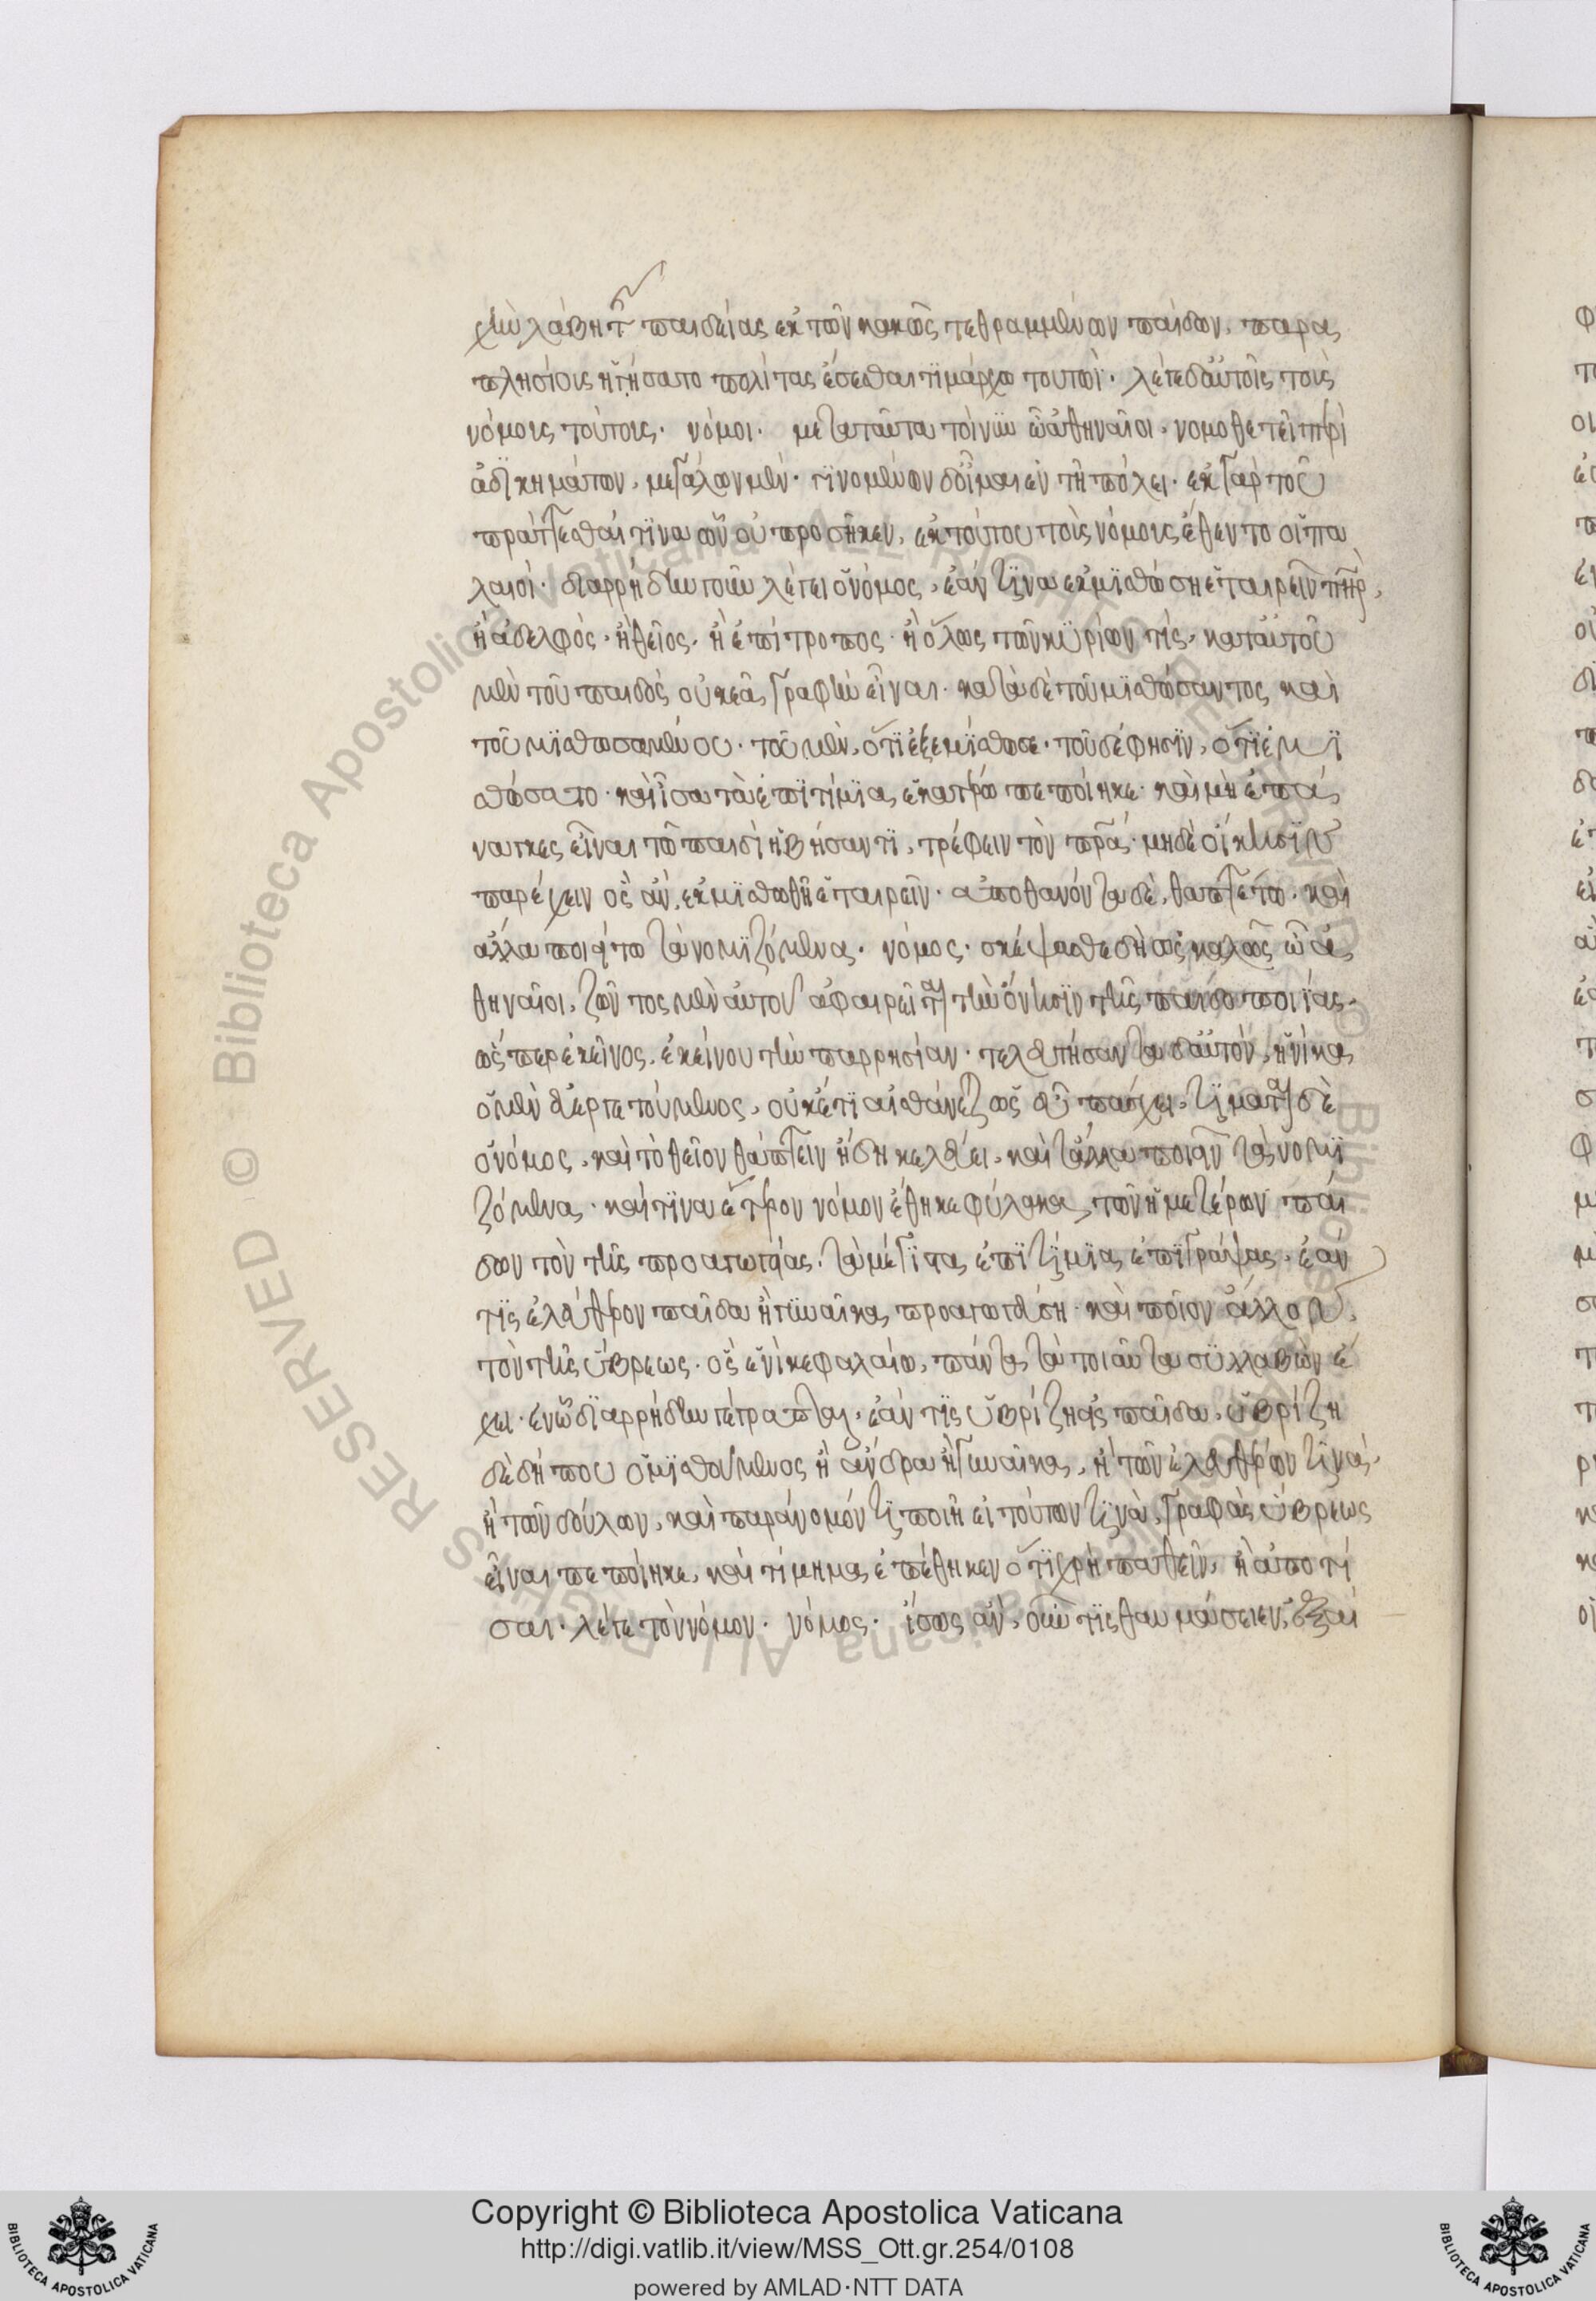 χὴν λάβη τῆς παιδείας ἐκ τῶν κακῶς τεθραμμένων παίδων, παρα
πλησίους ἡγήσατο πολίτας ἔσεσθαι τιμάρχω τουτωΐ. λέγε δ' αὐτοῖς τοὺς
νόμους τούτους. νόμοι. μετὰ ταῦτα τοίνυν ὦ ἀθηναῖοι, νομοθετεῖ περὶ
ἀδικημάτων, μεγάλων μὲν, γινομένων δ' οἶμαι ἐν τῇ πόλει. ἐκ γὰρ τοῦ
πράττεσθαί τινα ὧν οὐ προσῆκεν, ἐκ τούτου τοὺς νόμους ἔθεντο οἱ πα
λαιοί. διαρρήδην γοῦν λέγει ὁ νόμος, ἐάν τινα ἐκμισθώση ἑταιρεῖν πατὴρ,
ἢ ἀδελφὸς, ἢ θεῖος, ἢ ἐπίτροπος, ἢ ὅλως τῶν κυρίων τίς, κατ' αὐτοῦ
μὲν τοῦ παιδὸς οὐκ ἐᾶ γραφὴν εἶναι. κατὰ δὲ τοῦ μισθώσαντος καὶ
τοῦ μισθωσαμένου. τοῦ μὲν, ὅτι ἐξεμίσθωσε. τοῦ δέ φησιν, ὅτι ἐμι
σθώσατο. καὶ ἴσα τὰ ἐπιτίμια ἑκατέρω πεποίηκε. καὶ μὴ ἐπά
ναγκες εἶναι τῶ παιδὶ ἡβήσαντι, τρέφειν τὸν πατέρα. μηδὲ οἴκησιν
παρέχειν ὃς ἂν, ἐκμισθωθῆ ἑταιρεῖν. ἀποθανόντα δὲ, θαπτέτω. καὶ
ἄλλα ποιείτω τὰ νομιζόμενα. νόμος. σκέψασθε δὴ ὡς καλῶς ὦ ἀ
θηναῖοι, ζῶντος μὲν αὐτοῦ ἀφαιρεῖται τὴν ὄνησιν τῆς παιδοποιίας,
ὥσπερ ἐκεῖνος, ἐκείνου τὴν παρρησίαν. τελευτήσαντα δ' αὐτὸν, ἡνίκα
ὁ μὲν εὐεργετούμενος, οὐκέτι αἰσθάνεται ὧν εὖ πάσχει, τιμᾶται δὲ
ὁ νόμος, καὶ τὸ θεῖον θάπτειν ἤδη κελεύει, καὶ τἄλλα ποιεῖν τὰ νομι
ζόμενα. καί τινα ἕτερον νόμον ἔθηκε φύλακα τῶν ἡμετέρων παί
δων τὸν τῆς προαγωγείας, τὰ μέγιστα ἐπιτίμια ἐπιγράψας, ἐάν
τις ἐλεύθερον παῖδα ἢ γυναῖκα προαγωγεύση. καὶ ποῖον ἄλλον.
τὸν τῆς ὕβρεως. ὃς ἑνὶ κεφαλαίω, πάντα τὰ τοιαῦτα συλλαβὼν ἔ
χει. ἐν ὧ διαρρήδην γέγραπται, ἐάν τις ὑβρίζη εἰς παῖδα, ὑβρίζη
δὲ δή που ὁ μισθούμενος ἢ ἄνδρα ἢ γυναῖκα, ἢ τῶν ἐλευθέρων τινὰ,
ἢ τῶν δούλων, καὶ παράνομόν τι ποιῆ εἰ τούτων τινὰ, γραφὰς ὕβρεως
εἶναι πεποίηκε, καὶ τίμημα ἐπέθηκεν ὅτι χρὴ παθεῖν, ἢ ἀποτί
σαι. λέγε τὸν νόμον. νόμος. ἴσως ἂν, οὖν τις θαυμάσειεν,
Copyright © Biblioteca Apostolica Vaticana
http://digi.vatlib.it/view/MSS_Ott.gr.254/0108
powered by AMLAD·NTT DATA